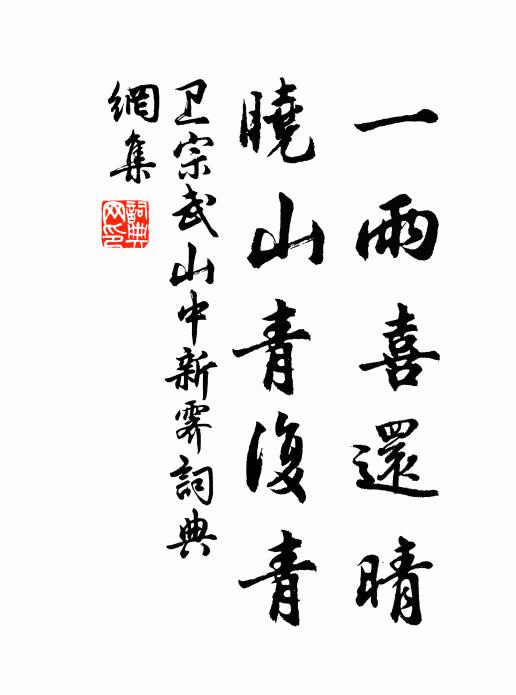 一雨喜還晴
曉山青復青
卫宗武山中新霽詞典
網集
詞典
网印